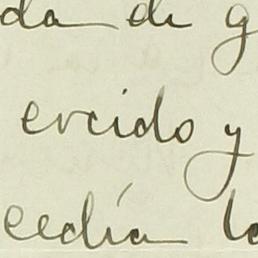 da de g
ercido y
cedía lo